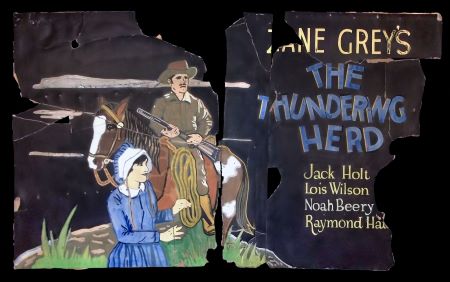 ZANE GREY'S
THE
THUNDERING
HERD
Jack Holt
Lois Wilson
Noah Beery
Raymond Hat